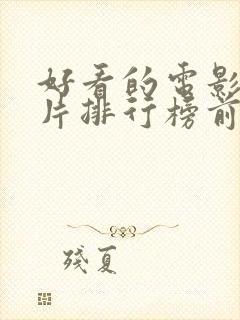 好看的电影
片排行榜前
残夏